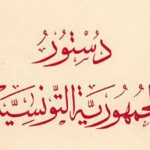 دستور
لجمهورية التونسية